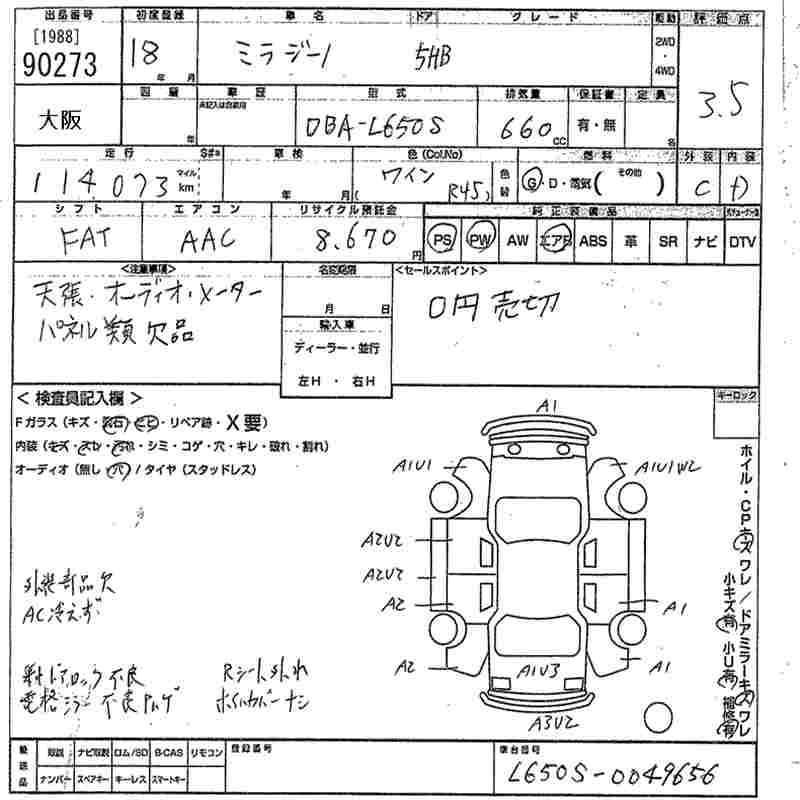 出品番号 初度登録 車名 ドア グレード 駆動 評価点
[1988]
90273 18 年 月 ミラジーノ 5HB 2WD・4WD 3.5
大阪 四暦 年 車歴 未記入は自家用 型式 DBA-L650S 排気量 660 cc 保証書 有・無 定員 名
走行 S#* 車検 色(Col,No) 燃料 外装 内装
114,073 マイル km 年 月 ワイン (R45) 色替 G・D・電気( その他 ) C D
シフト エアコン リサイクル預託金 純正装備品
FAT AAC 8,670 円 PS PW AW エアB ABS 革 SR ナビ DTV
<注意事項> 名変期限 <セールスポイント>
天張・オーディオ・メーター 月 日 0円売切
パネル類欠品 輸入車
ディーラー・並行
左H ・ 右H
<検査員記入欄> キーロック
Fガラス(キズ・飛石・ヒビ・リペア跡・X要)
内装(キズ・スレ・汚れ・シミ・コゲ・穴・キレ・破れ・割れ)
オーディオ(無し・穴)/タイヤ(スタッドレス)
A1
A1U1 A1U1W2
A2U2
A2U2
A2 A1
A2 A1U3 A1
A3U2
ホイル・CPキズ ワレ/ドアミラーキズ ワレ
小キズ有 小U有 補修有
外装部品欠
AC冷えず
ドアロック不良 Rシート外れ
電格ミラー不良 ホイルカバーナシ
後送品 取説 ナビ取説 ロム/SD B-CAS リモコン 登録番号 車台番号
ナンバー スペアキー キーレス スマートキー L650S-0049656